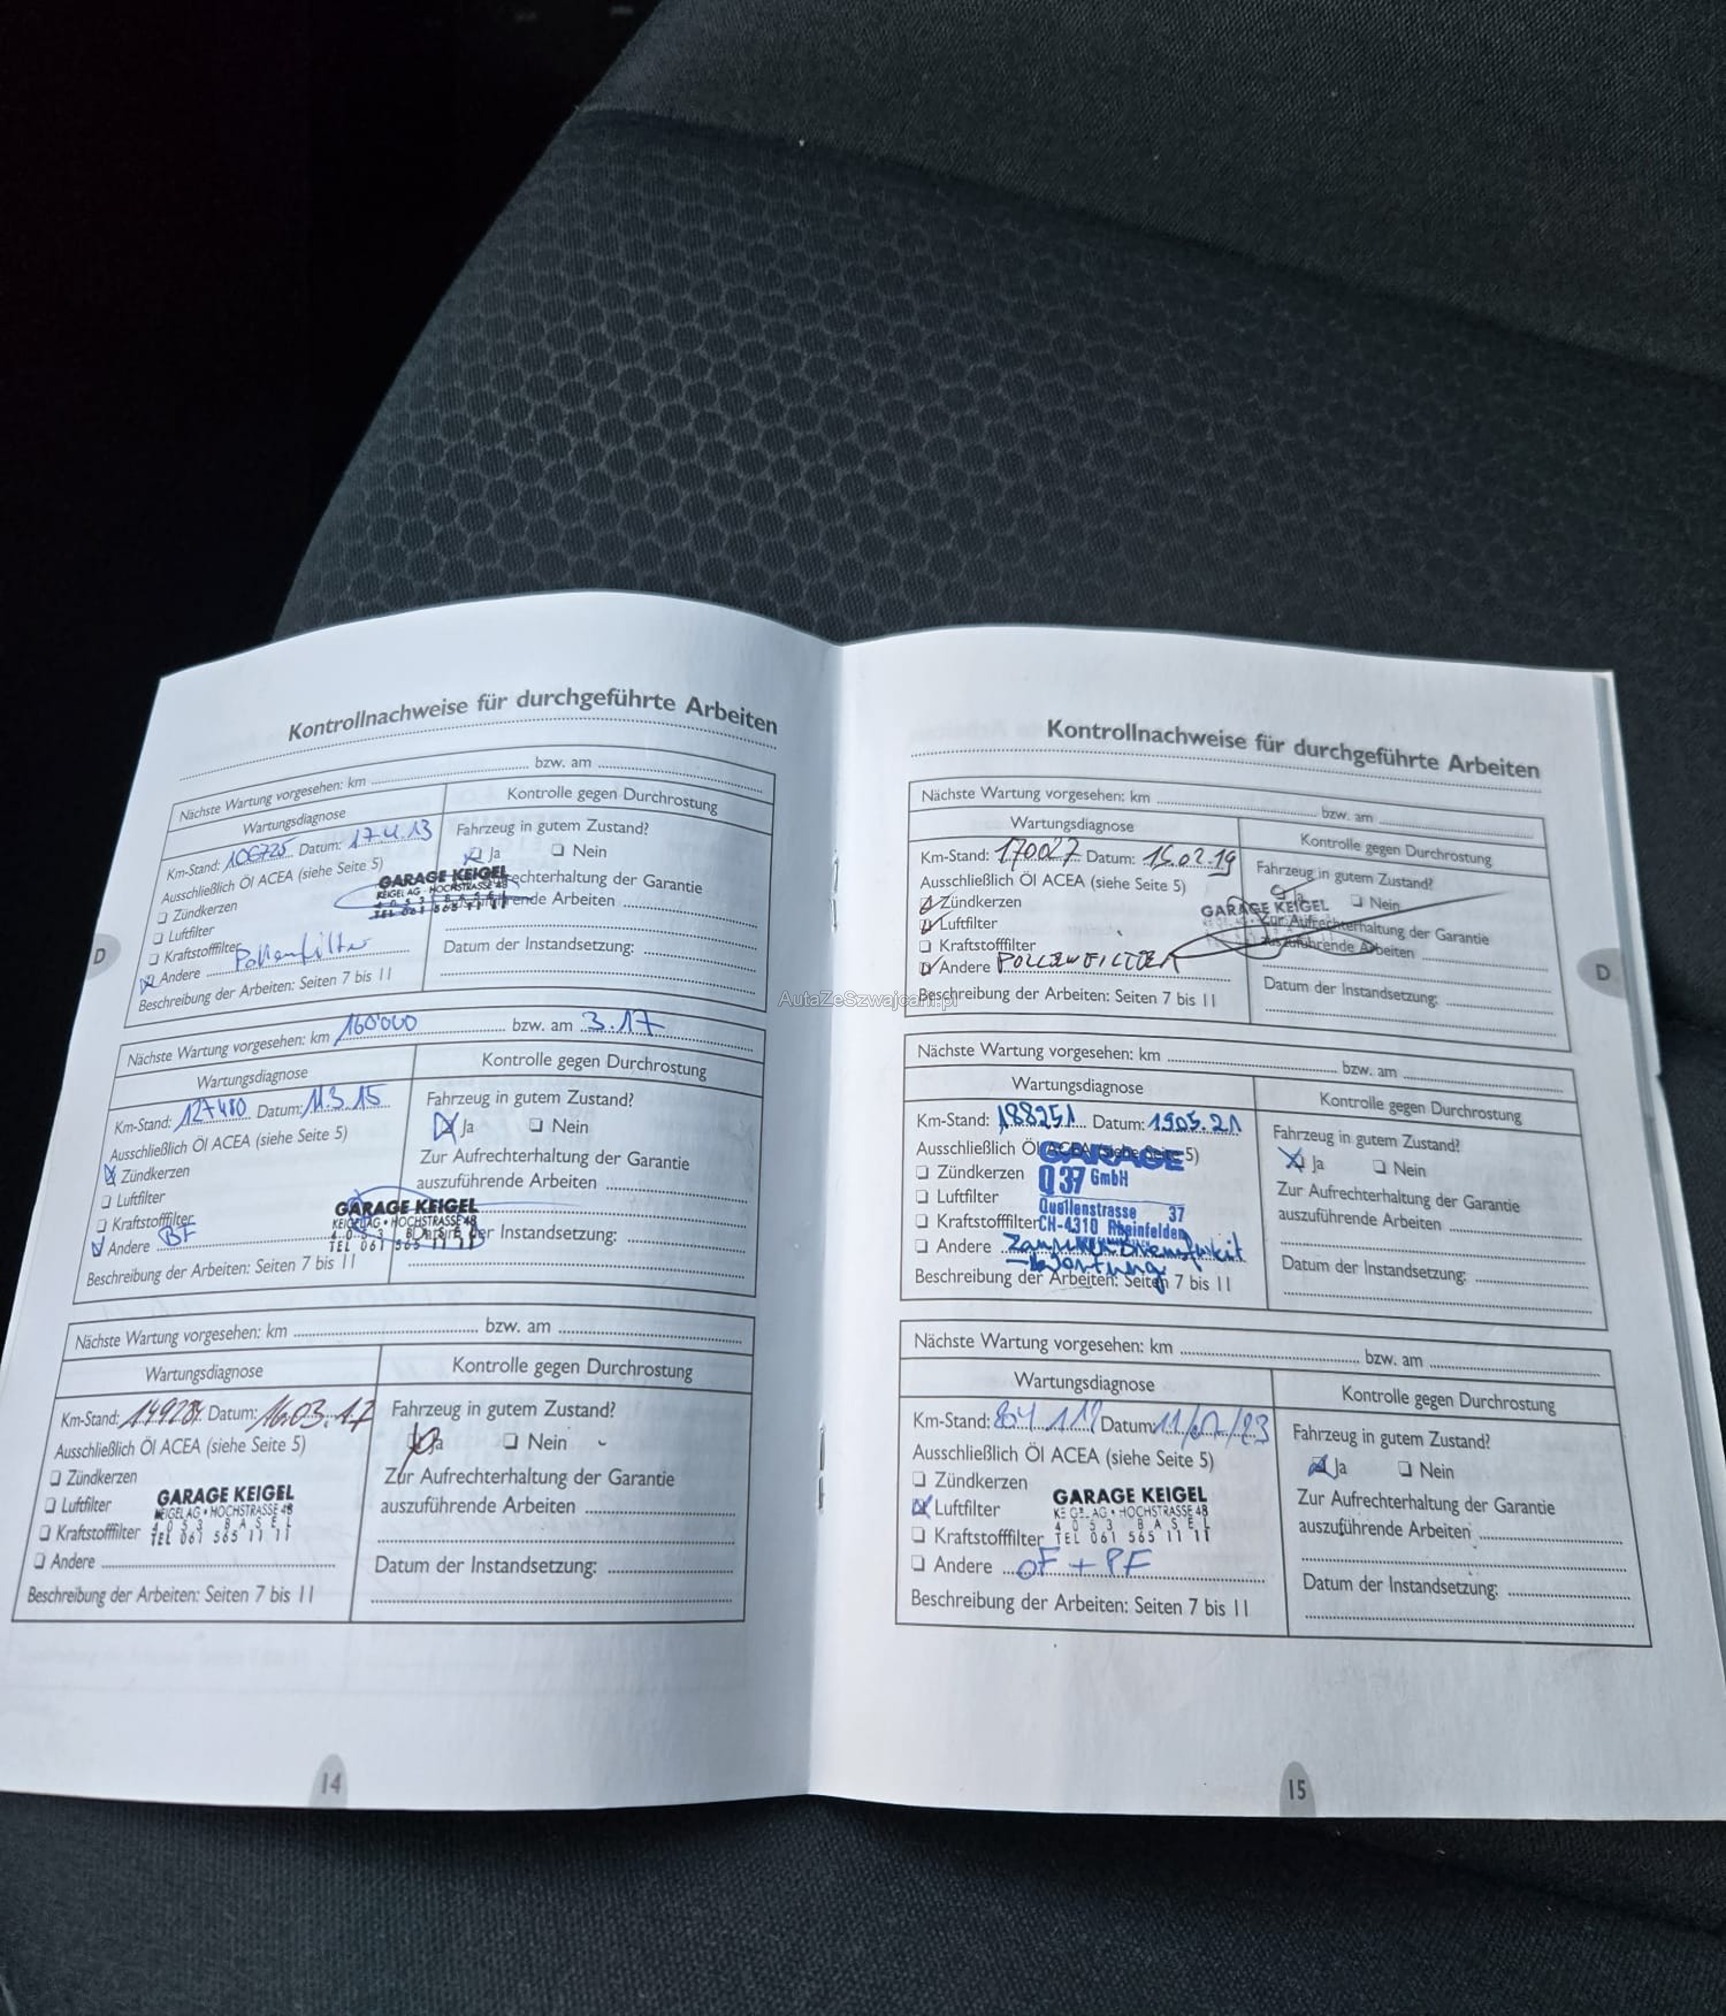 Kontrollnachweise für durchgeführte Arbeiten
Nächste Wartung vorgesehen: km bzw. am
Wartungsdiagnose
Kontrolle gegen Durchrostung
Km-Stand: 106725 Datum: 17.4.13
Ausschließlich Öl ACEA (siehe Seite 5)
Zündkerzen
Luftfilter
Kraftstofffilter
Andere Pollenfilter
Beschreibung der Arbeiten: Seiten 7 bis 11
Fahrzeug in gutem Zustand?
Ja Nein
GARAGE KEIGEL
KEIGEL AG • HOCHSTRASSE 48
4053 BASEL
TEL 061 565 11 11
rechterhaltung der Garantie
rende Arbeiten
Datum der Instandsetzung:
D
Nächste Wartung vorgesehen: km 160'000 bzw. am 3.17
Wartungsdiagnose
Kontrolle gegen Durchrostung
Km-Stand: 127480 Datum: 11.3.15
Ausschließlich Öl ACEA (siehe Seite 5)
Zündkerzen
Luftfilter
Kraftstofffilter
Andere BF
Beschreibung der Arbeiten: Seiten 7 bis 11
Fahrzeug in gutem Zustand?
Ja Nein
Zur Aufrechterhaltung der Garantie
auszuführende Arbeiten
GARAGE KEIGEL
KEIGEL AG • HOCHSTRASSE 48
4053 BASEL
TEL 061 565 11 11
der Instandsetzung:
Nächste Wartung vorgesehen: km bzw. am
Wartungsdiagnose
Kontrolle gegen Durchrostung
Km-Stand: Datum: 16.03.17
Ausschließlich Öl ACEA (siehe Seite 5)
Zündkerzen
Luftfilter
Kraftstofffilter
Andere
Beschreibung der Arbeiten: Seiten 7 bis 11
GARAGE KEIGEL
KEIGEL AG • HOCHSTRASSE 48
4053 BASEL
TEL 061 565 11 11
Fahrzeug in gutem Zustand?
Ja Nein
Zur Aufrechterhaltung der Garantie
auszuführende Arbeiten
Datum der Instandsetzung:
14
Kontrollnachweise für durchgeführte Arbeiten
Nächste Wartung vorgesehen: km bzw. am
Wartungsdiagnose
Kontrolle gegen Durchrostung
Km-Stand: 170027 Datum: 15.02.19
Ausschließlich Öl ACEA (siehe Seite 5)
Zündkerzen
Luftfilter
Kraftstofffilter
Andere POLLENFILTER
Beschreibung der Arbeiten: Seiten 7 bis 11
Fahrzeug in gutem Zustand?
Ja Nein
GARAGE KEIGEL
Zur Aufrechterhaltung der Garantie
auszuführende Arbeiten
Datum der Instandsetzung:
D
AutaZeSzwajcarii.pl
Nächste Wartung vorgesehen: km bzw. am
Wartungsdiagnose
Kontrolle gegen Durchrostung
Km-Stand: 188251 Datum: 19.05.21
Ausschließlich Öl ACEA (siehe Seite 5)
Zündkerzen
Luftfilter
Kraftstofffilter
Andere
Beschreibung der Arbeiten: Seiten 7 bis 11
GARAGE
Q37 GmbH
Quellenstrasse 37
CH-4310 Rheinfelden
Wartung
Fahrzeug in gutem Zustand?
Ja Nein
Zur Aufrechterhaltung der Garantie
auszuführende Arbeiten
Datum der Instandsetzung:
Nächste Wartung vorgesehen: km bzw. am
Wartungsdiagnose
Kontrolle gegen Durchrostung
Km-Stand: Datum:
Ausschließlich Öl ACEA (siehe Seite 5)
Zündkerzen
Luftfilter
Kraftstofffilter
Andere OF + PF
Beschreibung der Arbeiten: Seiten 7 bis 11
GARAGE KEIGEL
KEIGEL AG • HOCHSTRASSE 48
4053 BASEL
TEL 061 565 11 11
Fahrzeug in gutem Zustand?
Ja Nein
Zur Aufrechterhaltung der Garantie
auszuführende Arbeiten
Datum der Instandsetzung:
15